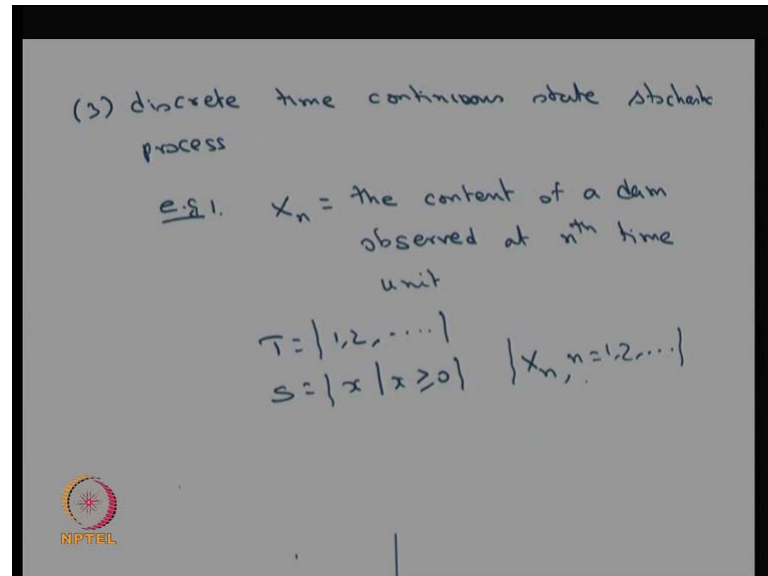 (3) discrete time continuous state stochastic
process
e.g 1. Xn = the content of a dam
observed at nth time
unit
T = {1,2, .....}
S = {x | x ≥ 0} {Xn, n=1,2,...}
NPTEL